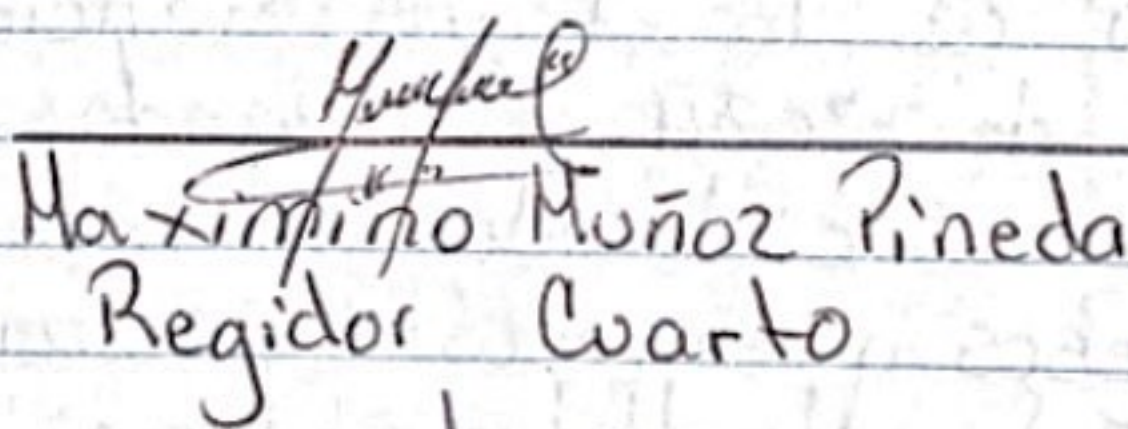 Maximino Muñoz Pineda
Regidor Cuarto